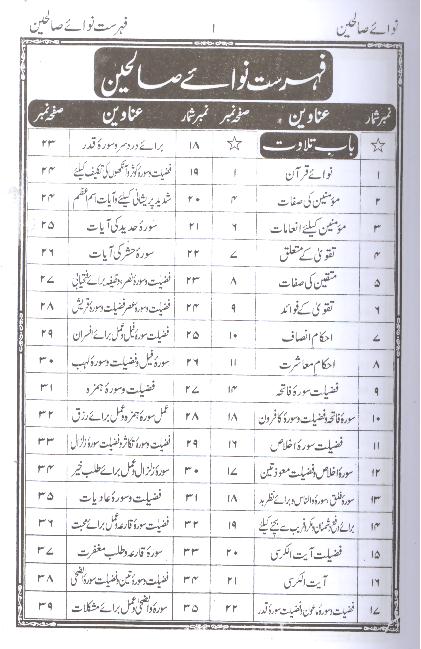 نوائے صالحین
۱
فہرست نوائے صالحین
فہرست نوائے صالحین
نمبر شمار عناوین صفحہ نمبر
☆ باب تلاوت ☆
۱ نوائے قرآن ۱
۲ مؤمنین کی صفات ۴
۳ مؤمنین کیلئے انعامات ۶
۴ تقویٰ کے متعلق ۷
۵ متقین کی صفات ۸
۶ تقویٰ کے فوائد ۹
۷ احکام انصاف ۱۰
۸ احکام معاشرت ۱۱
۹ فضیلت سورۂ فاتحہ ۱۴
۱۰ سورۂ فاتحہ و فضیلت و سورۂ کافرون ۱۸
۱۱ فضیلت سورۂ اخلاص ۱۶
۱۲ سورۂ اخلاص و فضیلت معوذتین ۱۷
۱۳ سورۂ فلق، سورۂ والناس و برائے نظر بد ۱۸
۱۴ برائے دفع دشمنان و مکر و فریب سے بچنے کیلئے ۱۹
۱۵ فضیلت آیت الکرسی ۲۰
۱۶ آیت الکرسی ۲۱
۱۷ فضیلت و سورۂ ماعون و فضیلت سورۂ قدر ۲۲
نمبر شمار عناوین صفحہ نمبر
۱۸ برائے درد سر و سورۂ قدر ۲۳
۱۹ فضیلت و سورۂ کوثر و آنکھوں کی تکلیف کیلئے ۲۴
۲۰ شدید پریشانی کیلئے و آیات اسم اعظم ۲۴
۲۱ سورۂ حدید کی آیات ۲۵
۲۲ سورۂ حشر کی آیات ۲۶
۲۳ فضیلت و سورۂ نصر، وظیفہ برائے فتحیابی ۲۷
۲۴ فضیلت و سورۂ عصر فضیلت و سورۂ قریش ۲۸
۲۵ فضیلت و سورۂ فیل و عمل برائے افسران ۲۹
۲۶ سورۂ فیل و فضیلت و سورۂ لہب ۳۰
۲۷ فضیلت و سورۂ ہمزہ ۳۱
۲۸ عمل سورۂ ہمزہ و عمل برائے رزق ۳۲
۲۹ فضیلت و سورۂ تکاثر و فضیلت سورۂ زلزال ۳۳
۳۰ سورۂ زلزال و عمل برائے طلب خیر ۳۴
۳۱ فضیلت و سورۂ عادیات ۳۵
۳۲ فضیلت سورۂ قارعہ و عمل برائے محبت ۳۶
۳۳ سورۂ قارعہ و طلب مغفرت ۳۷
۳۴ فضیلت و سورۂ تین و فضیلت سورۂ الضحیٰ ۳۸
۳۵ سورۂ والضحیٰ و عمل برائے مشکلات ۳۹